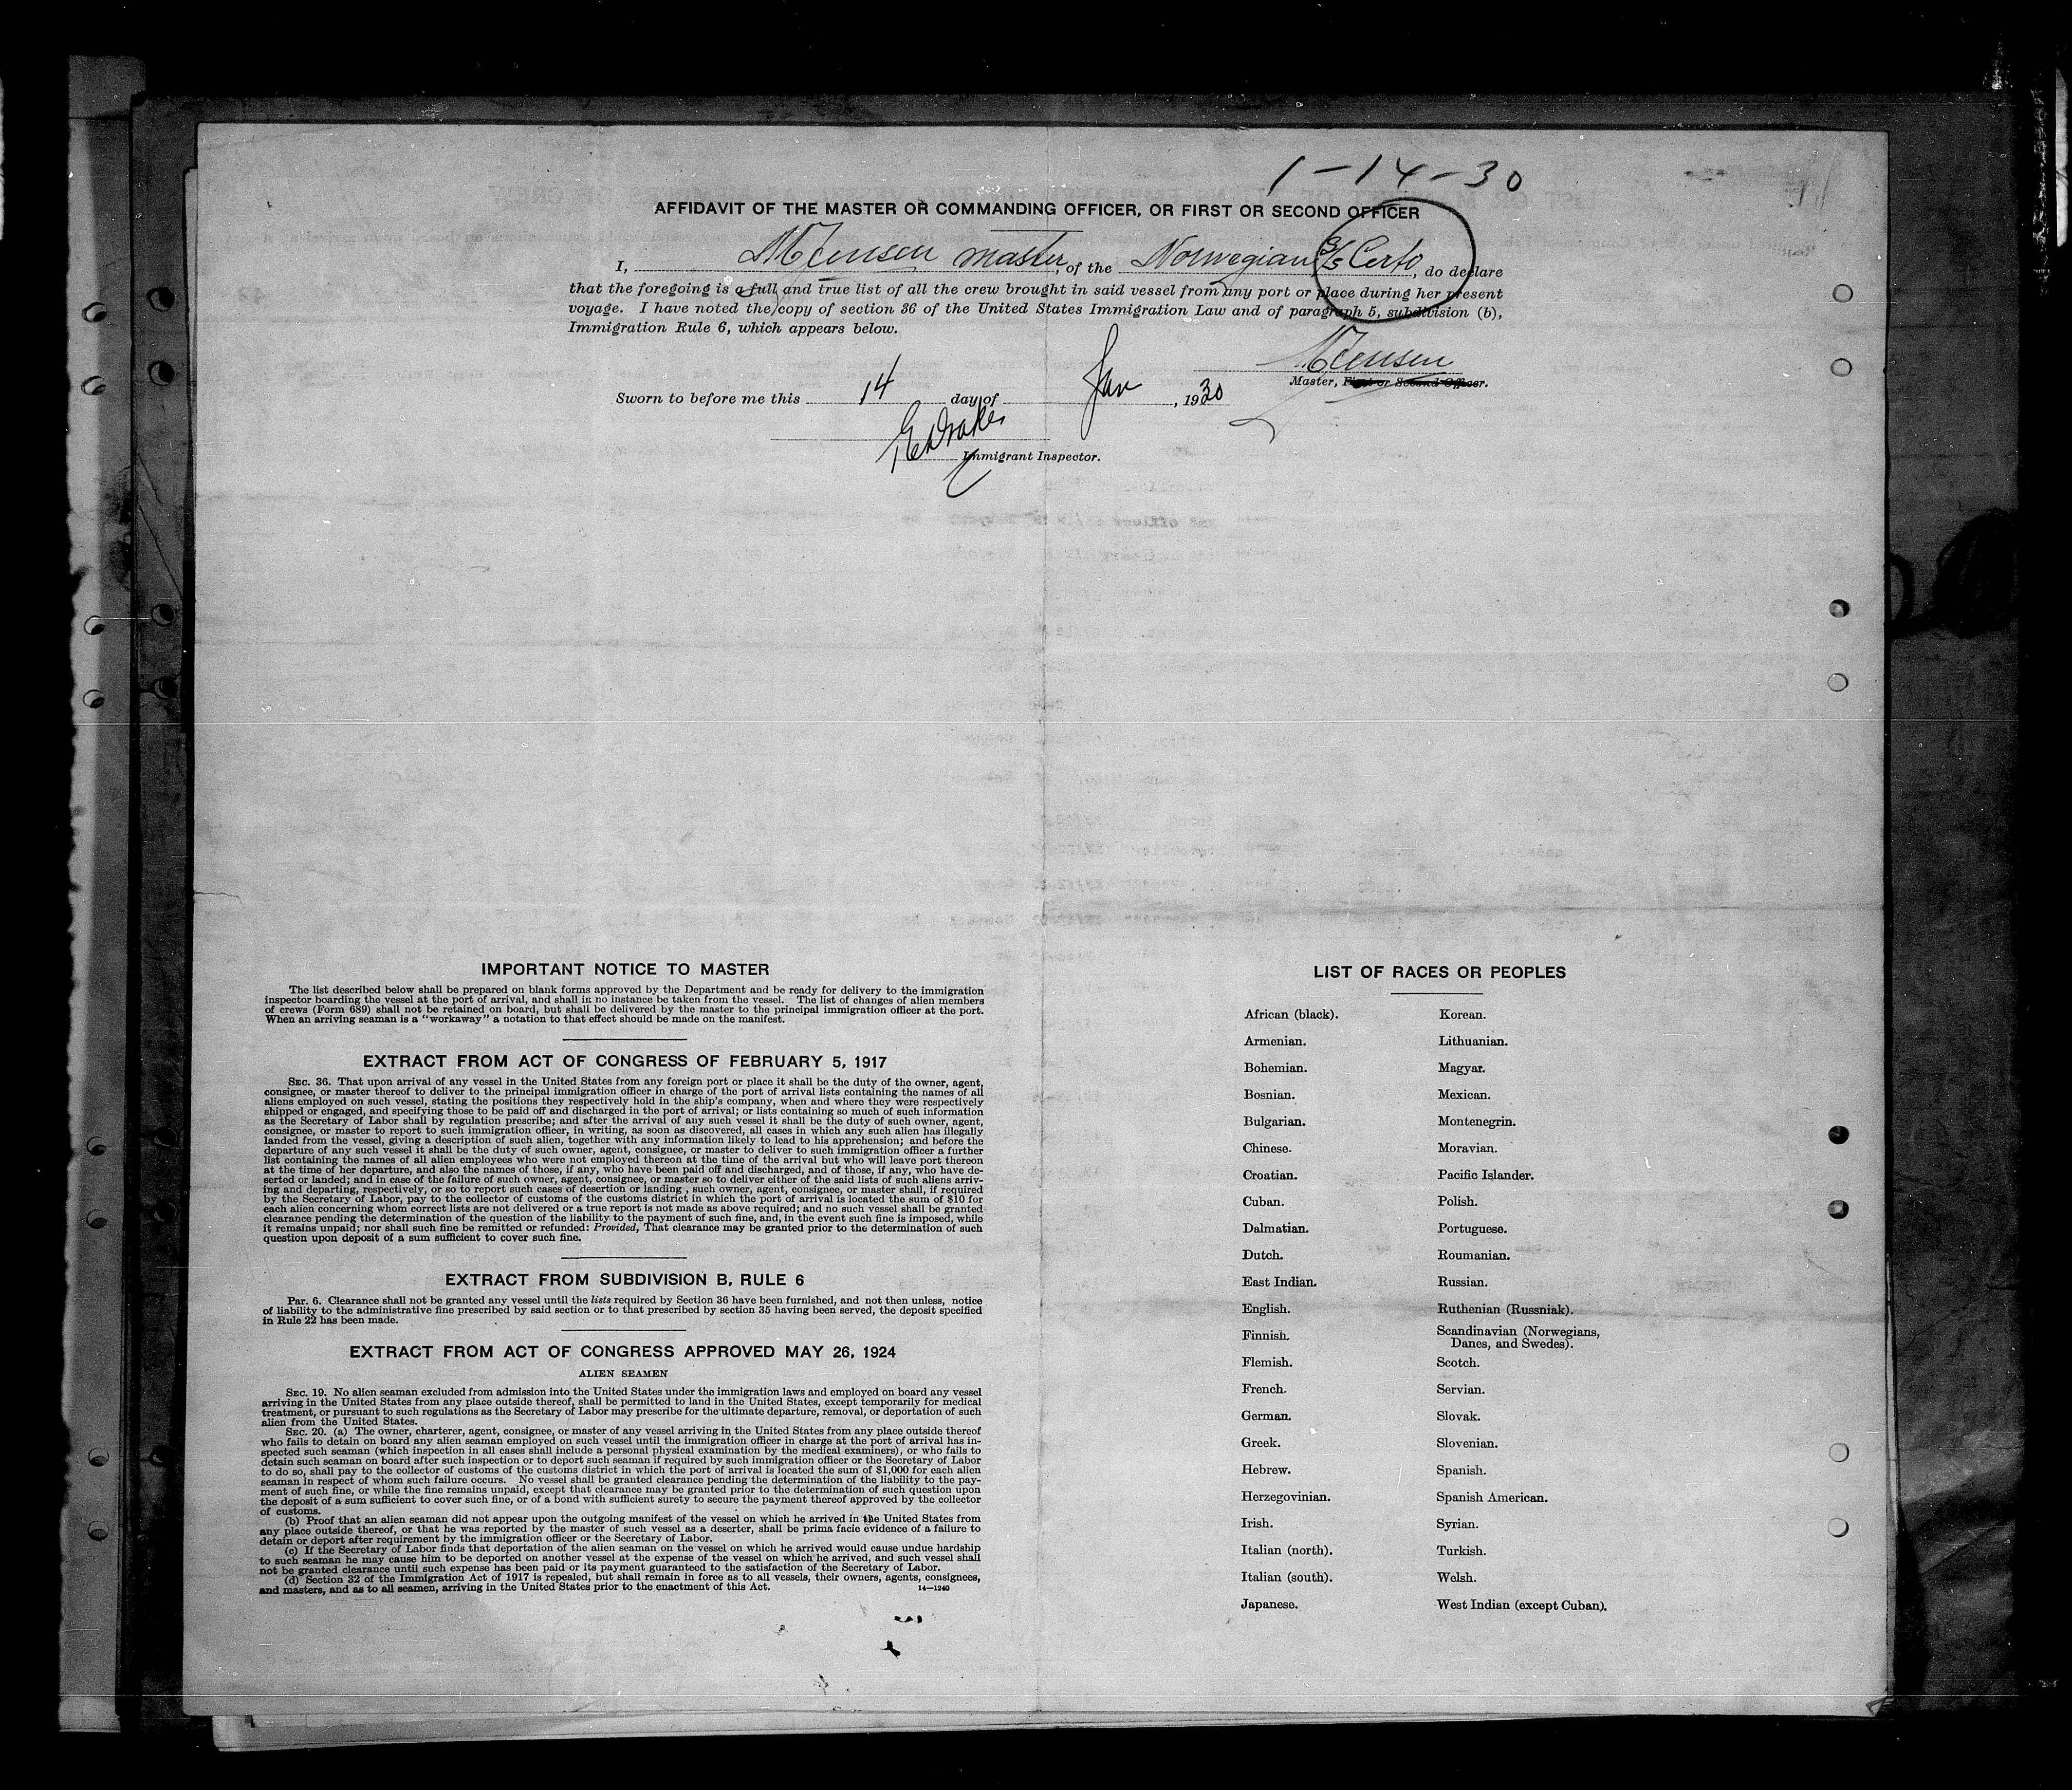 1-14-30
AFFIDAVIT OF THE MASTER OR COMMANDING OFFICER, OR FIRST OR SECOND OFFICER
I, M Jensen master, of the Norwegian S/S Certo, do declare
that the foregoing is a full and true list of all the crew brought in said vessel from any port or place during her present
voyage. I have noted the copy of section 36 of the United States Immigration Law and of paragraph 5, subdivision (b),
Immigration Rule 6, which appears below.
M Jensen
Master, First or Second Officer.
Sworn to before me this 14 day of Jan, 1930
Drakes
Immigrant Inspector.
IMPORTANT NOTICE TO MASTER
The list described below shall be prepared on blank forms approved by the Department and be ready for delivery to the immigration
inspector boarding the vessel at the port of arrival, and shall in no instance be taken from the vessel. The list of changes of alien members
of crews (Form 689) shall not be retained on board, but shall be delivered by the master to the principal immigration officer at the port.
When an arriving seaman is a "workaway" a notation to that effect should be made on the manifest.
EXTRACT FROM ACT OF CONGRESS OF FEBRUARY 5, 1917
SEC. 36. That upon arrival of any vessel in the United States from any foreign port or place it shall be the duty of the owner, agent,
consignee, or master thereof to deliver to the principal immigration officer in charge of the port of arrival lists containing the names of all
aliens employed on such vessel, stating the positions they respectively hold in the ship's company, when and where they were respectively
shipped or engaged, and specifying those to be paid off and discharged in the port of arrival; or lists containing so much of such information
as the Secretary of Labor shall by regulation prescribe; and after the arrival of any such vessel it shall be the duty of such owner, agent,
consignee, or master to report to such immigration officer, in writing, as soon as discovered, all cases in which any such alien has illegally
landed from the vessel, giving a description of such alien, together with any information likely to lead to his apprehension; and before the
departure of any such vessel it shall be the duty of such owner, agent, consignee, or master to deliver to such immigration officer a further
list containing the names of all alien employees who were not employed thereon at the time of the arrival but who will leave port thereon
at the time of her departure, and also the names of those, if any, who have been paid off and discharged, and of those, if any, who have de-
serted or landed; and in case of the failure of such owner, agent, consignee, or master so to deliver either of the said lists of such aliens arriv-
ing and departing, respectively, or so to report such cases of desertion or landing, such owner, agent, consignee, or master shall, if required
by the Secretary of Labor, pay to the collector of customs of the customs district in which the port of arrival is located the sum of $10 for
each alien concerning whom correct lists are not delivered or a true report is not made as above required; and no such vessel shall be granted
clearance pending the determination of the question of the liability to the payment of such fine, and, in the event such fine is imposed, while
it remains unpaid; nor shall such fine be remitted or refunded: Provided, That clearance may be granted prior to the determination of such
question upon deposit of a sum sufficient to cover such fine.
EXTRACT FROM SUBDIVISION B, RULE 6
Par. 6. Clearance shall not be granted any vessel until the lists required by Section 36 have been furnished, and not then unless, notice
of liability to the administrative fine prescribed by said section or to that prescribed by section 35 having been served, the deposit specified
in Rule 22 has been made.
EXTRACT FROM ACT OF CONGRESS APPROVED MAY 26, 1924
ALIEN SEAMEN
SEC. 19. No alien seaman excluded from admission into the United States under the immigration laws and employed on board any vessel
arriving in the United States from any place outside thereof, shall be permitted to land in the United States, except temporarily for medical
treatment, or pursuant to such regulations as the Secretary of Labor may prescribe for the ultimate departure, removal, or deportation of such
alien from the United States.
SEC. 20. (a) The owner, charterer, agent, consignee, or master of any vessel arriving in the United States from any place outside thereof
who fails to detain on board any alien seaman employed on such vessel until the immigration officer in charge at the port of arrival has in-
spected such seaman (which inspection in all cases shall include a personal physical examination by the medical examiners), or who fails to
detain such seaman on board after such inspection or to deport such seaman if required by such immigration officer or the Secretary of Labor
to do so, shall pay to the collector of customs of the customs district in which the port of arrival is located the sum of $1,000 for each alien
seaman in respect of whom such failure occurs. No vessel shall be granted clearance pending the determination of the liability to the pay-
ment of such fine, or while the fine remains unpaid, except that clearance may be granted prior to the determination of such question upon
the deposit of a sum sufficient to cover such fine, or of a bond with sufficient surety to secure the payment thereof approved by the collector
of customs.
(b) Proof that an alien seaman did not appear upon the outgoing manifest of the vessel on which he arrived in the United States from
any place outside thereof, or that he was reported by the master of such vessel as a deserter, shall be prima facie evidence of a failure to
detain or deport after requirement by the immigration officer or the Secretary of Labor.
(c) If the Secretary of Labor finds that deportation of the alien seaman on the vessel on which he arrived would cause undue hardship
to such seaman he may cause him to be deported on another vessel at the expense of the vessel on which he arrived, and such vessel shall
not be granted clearance until such expense has been paid or its payment guaranteed to the satisfaction of the Secretary of Labor.
(d) Section 32 of the Immigration Act of 1917 is repealed, but shall remain in force as to all vessels, their owners, agents, consignees,
and masters, and as to all seamen, arriving in the United States prior to the enactment of this Act. 14—1240
LIST OF RACES OR PEOPLES
African (black). Korean.
Armenian. Lithuanian.
Bohemian. Magyar.
Bosnian. Mexican.
Bulgarian. Montenegrin.
Chinese. Moravian.
Croatian. Pacific Islander.
Cuban. Polish.
Dalmatian. Portuguese.
Dutch. Roumanian.
East Indian. Russian.
English. Ruthenian (Russniak).
Finnish. Scandinavian (Norwegians,
Danes, and Swedes).
Flemish. Scotch.
French. Servian.
German. Slovak.
Greek. Slovenian.
Hebrew. Spanish.
Herzegovinian. Spanish American.
Irish. Syrian.
Italian (north). Turkish.
Italian (south). Welsh.
Japanese. West Indian (except Cuban).